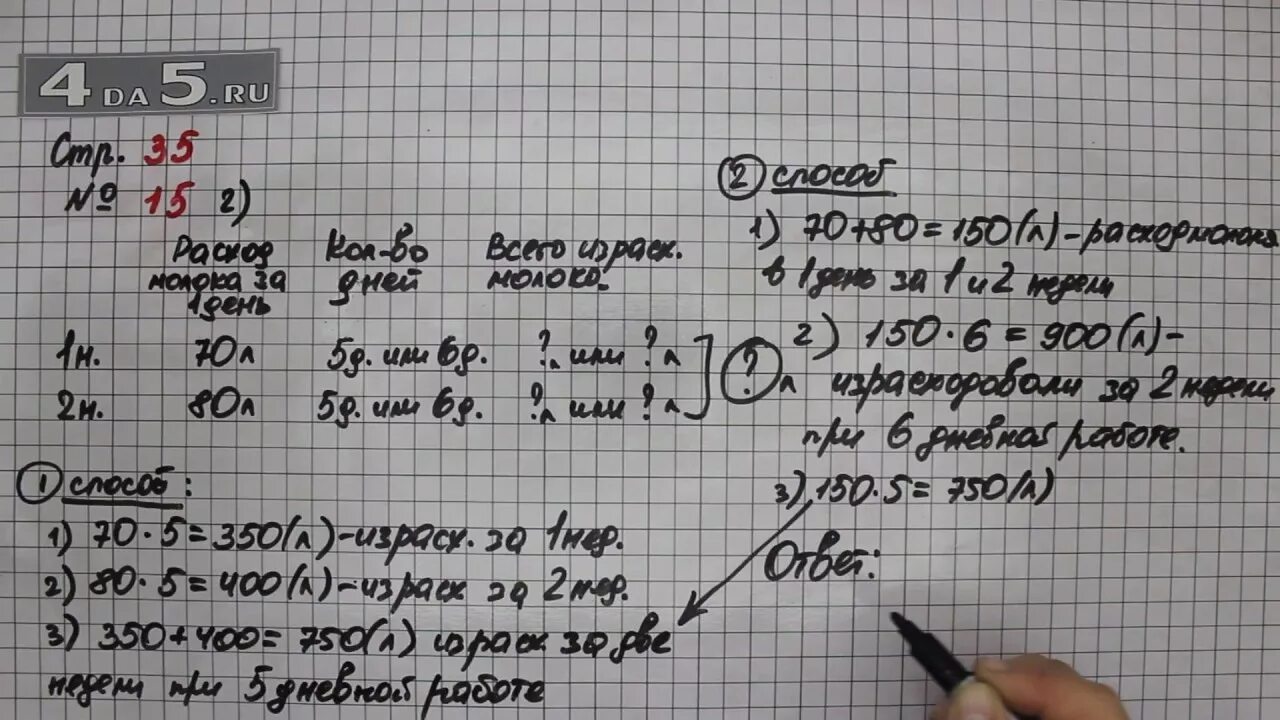 4 DA 5.RU
Стр. 35
№ 15 2)
Расход Кол-во Всего израсх.
молока за дней молока.
1 день
1н. 70л 5д. или 6д. ?л или ?л
2н. 80л 5д. или 6д. ?л или ?л
? л
1 способ:
1) 70·5=350(л)-израсх. за 1 нед.
2) 80·5=400(л)-израсх за 2 нед.
3) 350+400=750(л) израсх за две
недели при 5 дневной работе
2 способ
1) 70+80=150(л)-расход молока
в 1 день за 1 и 2 недели
2) 150·6=900(л)-
израсходовали за 2 недели
при 6 дневной работе.
3) 150·5=750(л)
Ответ: